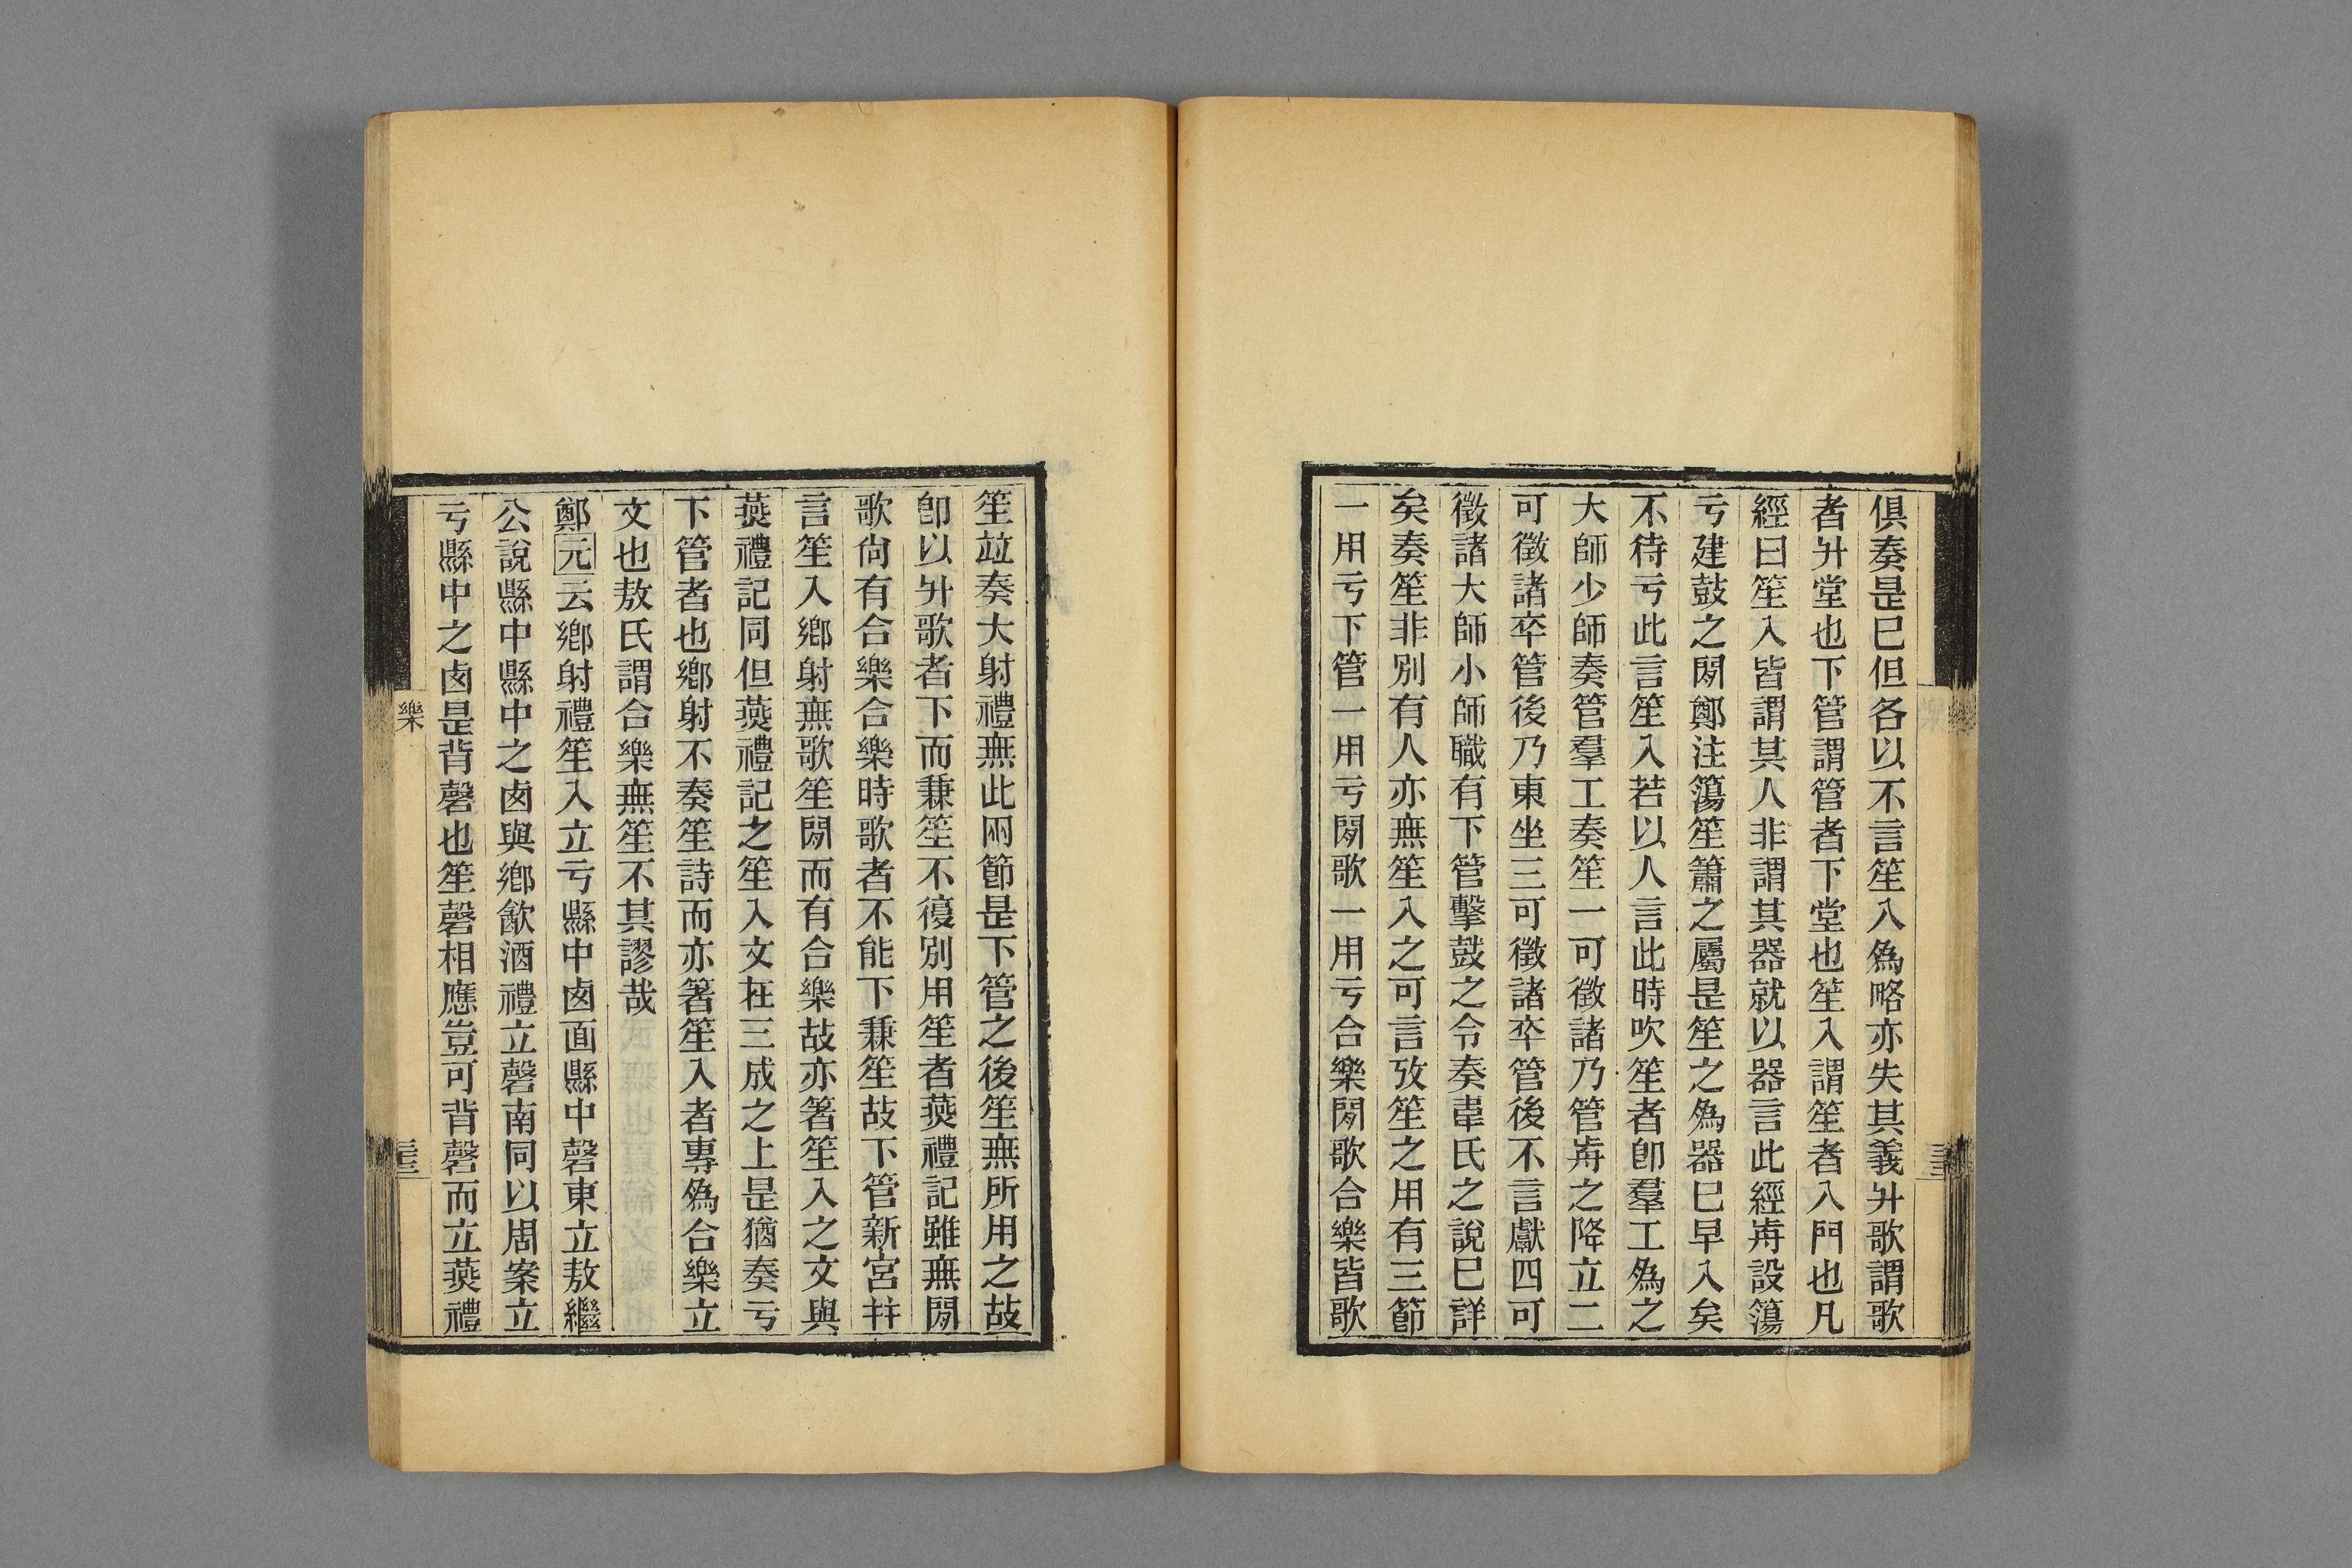 俱奏是已但各以不言笙入爲略亦失其義升歌謂歌
者升堂也下管謂管者下堂也笙入謂笙者入門也凡
經曰笙入皆謂其人非謂其器就以器言此經歬設簜
亏建鼓之閒鄭注簜笙簫之屬是笙之爲器已早入矣
不待亏此言笙入若以人言此時吹笙者卽羣工爲之
大師少師奏管羣工奏笙一可徵諸乃管歬之降立二
可徵諸卒管後乃東坐三可徵諸卒管後不言獻四可
徵諸大師小師職有下管擊鼓之令奏韋氏之說已詳
矣奏笙非別有人亦無笙入之可言攷笙之用有三節
一用亏下管一用亏閒歌一用亏合樂閒歌合樂皆歌
笙竝奏大射禮無此兩節是下管之後笙無所用之故
卽以升歌者下而兼笙不復別用笙者燕禮記雖無閒
歌尙有合樂合樂時歌者不能下兼笙故下管新宮幷
言笙入鄉射無歌笙閒而有合樂故亦箸笙入之文與
燕禮記同但燕禮記之笙入文在三成之上是猶奏亏
下管者也鄉射不奏笙詩而亦箸笙入者專爲合樂立
文也敖氏謂合樂無笙不其謬哉
鄭元云鄉射禮笙入立亏縣中卤面縣中磬東立敖繼
公說縣中縣中之卤與鄉飮酒禮立磬南同以周案立
亏縣中之卤是背磬也笙磬相應豈可背磬而立燕禮
樂